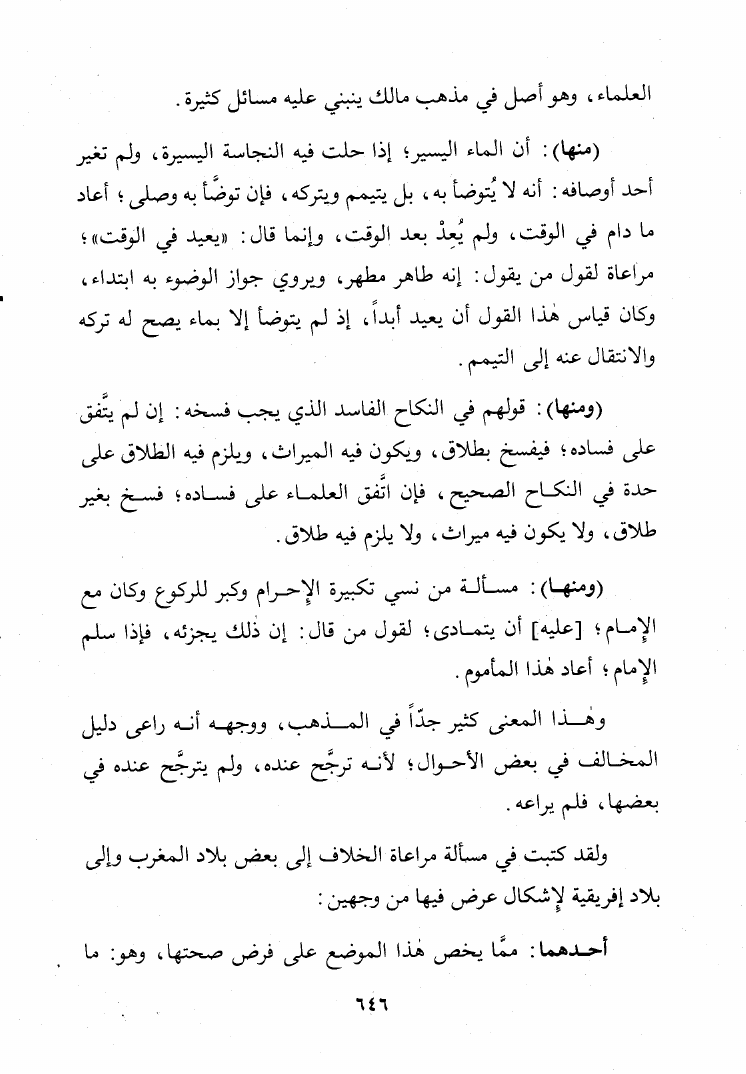 العلماء، وهو أصل في مذهب مالك ينبني عليه مسائل كثيرة.
(منها): أن الماء اليسير؛ إذا حلت فيه النجاسة اليسيرة، ولم تغير
أحد أوصافه: أنه لا يُتوضأ به، بل يتيمم ويتركه، فإن توضَّأ به وصلى؛ أعاد
ما دام في الوقت، ولم يُعِدْ بعد الوقت، وإنما قال: «يعيد في الوقت»؛
مراعاة لقول من يقول: إنه طاهر مطهر، ويروي جواز الوضوء به ابتداء،
وكان قياس هٰذا القول أن يعيد أبداً، إذ لم يتوضأ إلا بماء يصح له تركه
والانتقال عنه إلى التيمم.
(ومنها): قولهم في النكاح الفاسد الذي يجب فسخه: إن لم يتَّفق
على فساده؛ فيفسخ بطلاق، ويكون فيه الميراث، ويلزم فيه الطلاق على
حدة في النكاح الصحيح، فإن اتَّفق العلماء على فساده؛ فسخ بغير
طلاق، ولا يكون فيه ميراث، ولا يلزم فيه طلاق.
(ومنها): مسألة من نسي تكبيرة الإحرام وكبر للركوع وكان مع
الإمام؛ [عليه] أن يتمادى؛ لقول من قال: إن ذٰلك يجزئه، فإذا سلم
الإمام؛ أعاد هٰذا المأموم.
وهٰذا المعنى كثير جدّاً في المذهب، ووجهه أنه راعى دليل
المخالف في بعض الأحوال؛ لأنه ترجَّح عنده، ولم يترجَّح عنده في
بعضها، فلم يراعه.
ولقد كتبت في مسألة مراعاة الخلاف إلى بعض بلاد المغرب وإلى
بلاد إفريقية لإشكال عرض فيها من وجهين:
أحدهما: ممَّا يخص هٰذا الموضع على فرض صحتها، وهو: ما
٦٤٦